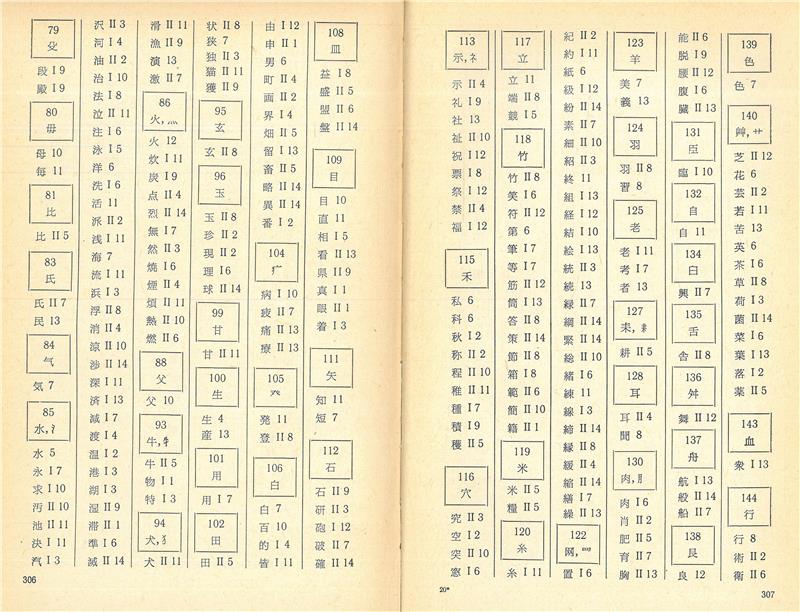 79
殳
段 I 9
殿 I 9
80
毋
母 10
毎 11
81
比
比 II 5
83
氏
氏 II 7
民 13
84
气
気 7
85
水, 氵
水 5
永 I 7
求 I 10
汚 II 10
池 II 11
決 I 11
汽 I 3
沢 II 3
河 I 4
油 II 2
治 I 10
法 I 8
泣 II 11
注 I 6
泳 I 5
洋 6
洗 I 6
活 11
派 II 2
浅 I 11
海 7
流 I 11
浜 I 3
浮 II 8
消 II 4
涼 II 10
渉 II 14
深 I 11
済 I 13
減 I 7
渡 I 4
温 I 2
港 I 3
湖 I 3
湿 II 9
滞 II 1
準 I 6
滅 II 14
滑 II 11
漁 II 9
演 13
激 II 7
86
火, 灬
火 12
炊 I 11
炭 I 9
点 II 4
烈 II 14
無 I 7
然 II 3
焼 I 6
煙 II 4
煩 II 11
熱 II 10
燃 II 6
88
父
父 10
93
牛, 牜
牛 II 5
物 I 1
特 I 3
94
犬, 犭
犬 II 11
状 II 8
狭 7
独 II 3
猫 II 11
獲 II 9
95
玄
玄 II 8
96
玉
玉 II 8
珍 II 2
現 II 2
理 I 6
球 II 14
99
甘
甘 II 11
100
生
生 4
産 13
101
用
用 I 7
102
田
田 II 5
由 I 12
申 II 1
男 6
町 II 4
画 II 2
界 I 4
畑 II 5
留 I 13
畜 II 5
略 II 14
異 II 14
番 I 2
104
疒
病 I 10
疲 II 7
痛 II 13
療 II 13
105
癶
発 11
登 II 8
106
白
白 7
百 10
的 I 4
皆 I 11
108
皿
益 I 8
盛 II 5
盟 II 6
盤 II 14
109
目
目 10
直 11
相 I 5
看 II 13
県 II 9
真 I 1
眼 II 1
着 I 3
111
矢
知 11
短 7
112
石
石 II 9
研 II 3
砲 I 12
破 II 7
確 II 14
306
113
示, 礻
示 II 4
礼 I 9
社 13
祉 II 10
祝 I 12
票 I 8
祭 I 12
禁 II 4
福 I 12
115
禾
私 6
科 6
秋 I 2
称 II 2
程 II 10
稚 II 11
種 I 7
積 I 9
穫 II 5
116
穴
究 II 3
空 I 2
突 II 10
窓 I 6
117
立
立 11
端 II 8
競 I 5
118
竹
竹 II 8
笑 I 6
符 II 12
第 6
筆 I 7
等 I 7
筋 II 12
筒 I 13
答 II 8
策 II 14
節 II 8
箱 I 8
範 II 6
簡 II 10
籍 II 1
119
米
米 II 5
糧 II 5
120
糸
糸 I 11
紀 II 2
約 I 11
紙 6
級 I 12
紛 II 14
素 II 7
細 II 10
紹 II 3
終 11
組 I 13
経 I 12
結 I 10
絵 I 13
統 II 3
続 13
緑 II 7
綱 II 14
緊 II 14
絵 II 10
緒 I 6
練 11
線 I 3
締 II 14
縁 II 8
緩 II 4
縮 II 14
繕 I 7
繰 II 13
122
网, 罒
置 I 6
123
羊
美 7
義 13
124
羽
羽 II 8
習 8
125
老
老 I 11
考 I 7
者 I 13
127
耒, 耒
耕 II 5
128
耳
耳 II 4
聞 8
130
肉, 月
肉 I 6
肖 II 2
肥 II 5
育 II 7
胸 II 13
能 II 6
脱 I 9
腰 II 12
腹 I 6
臓 II 13
131
臣
臨 I 10
132
自
自 11
134
臼
興 II 7
135
舌
舎 II 8
136
舛
舞 II 12
137
舟
航 I 13
般 II 14
船 II 7
138
艮
良 12
139
色
色 7
140
艸, 艹
芝 II 12
花 6
芸 II 2
若 II 11
苦 13
英 6
茶 I 6
草 II 8
荷 I 3
菌 II 14
菜 I 6
葉 I 13
落 I 2
薬 II 5
143
血
衆 I 13
144
行
行 8
術 II 2
衛 II 6
20*
307